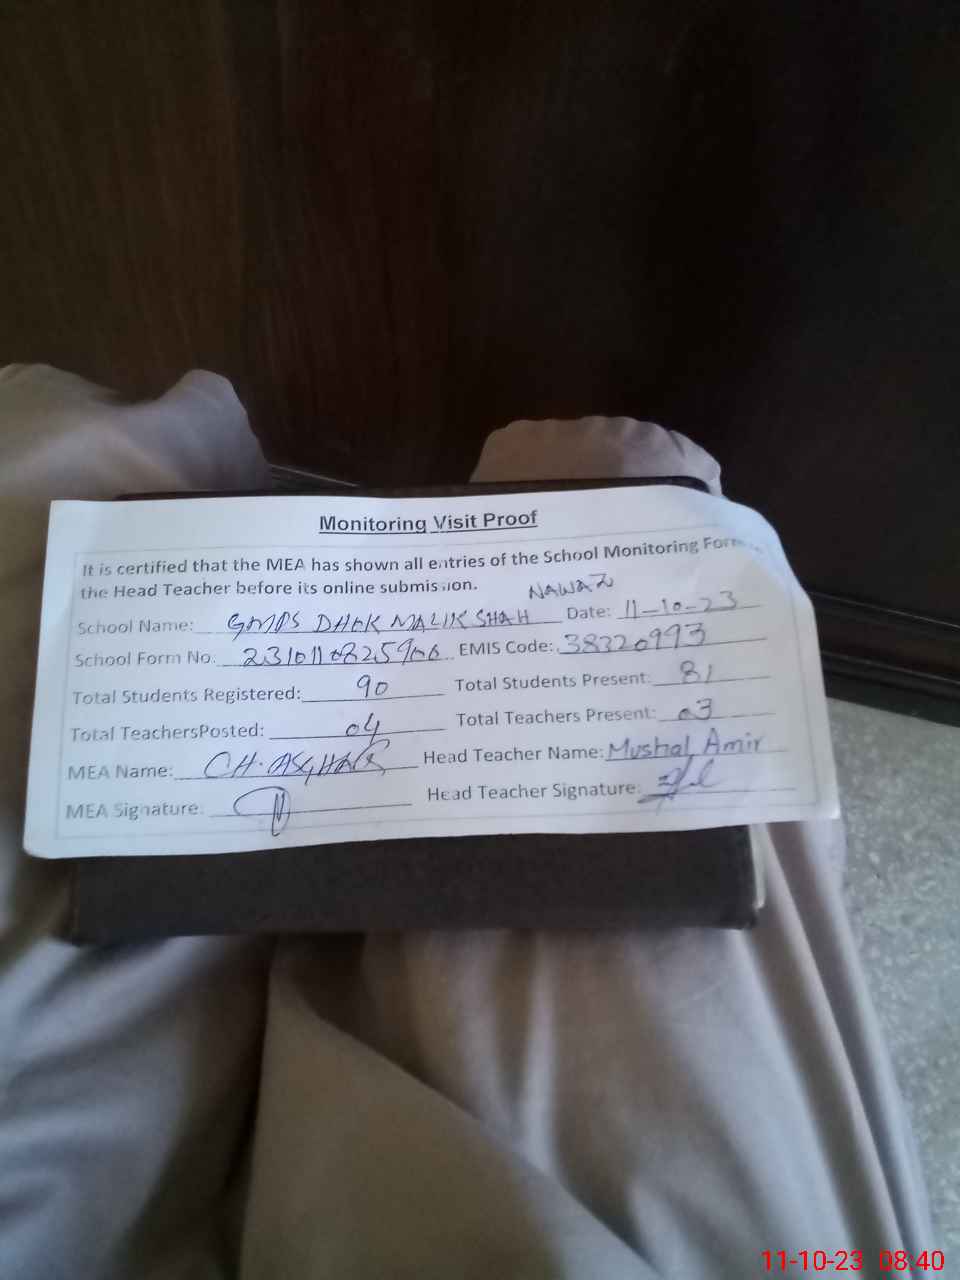 Monitoring Visit Proof
It is certified that the MEA has shown all entries of the School Monitoring Form
the Head Teacher before its online submission.
NAWAZ
School Name: GMPS DHOK MALIK SHAH Date: 11-10-23
School Form No. 231011082590 EMIS Code: 38320993
Total Students Registered: 90 Total Students Present: 81
Total TeachersPosted: 04 Total Teachers Present: 03
MEA Name: CH. ASGHAR Head Teacher Name: Mushal Amir
MEA Signature: Head Teacher Signature:
11-10-23 08:40